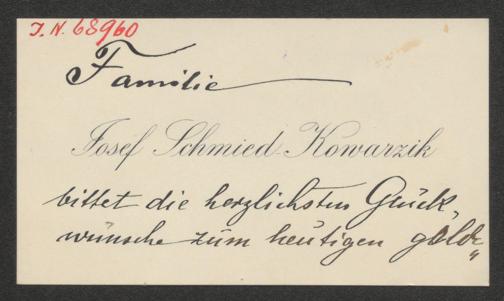 J. N. 68960
Familie
Josef Schmied-Kowarzik
bittet die herzlichsten Glück„
wünsche zum heutigen golde„